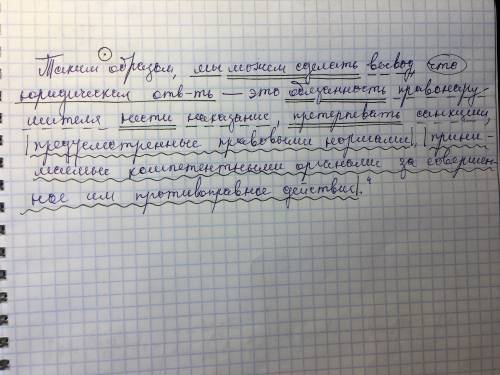 Таким образом, мы можем сделать вывод, что
юридическая отв-ть — это обязанность правонару-
шителя нести наказание, претерпевать санкции,
|предусмотренные правовыми нормами|, |прини-
маемые компетентными органами за совершен-
ное им противоправное действие|. 4